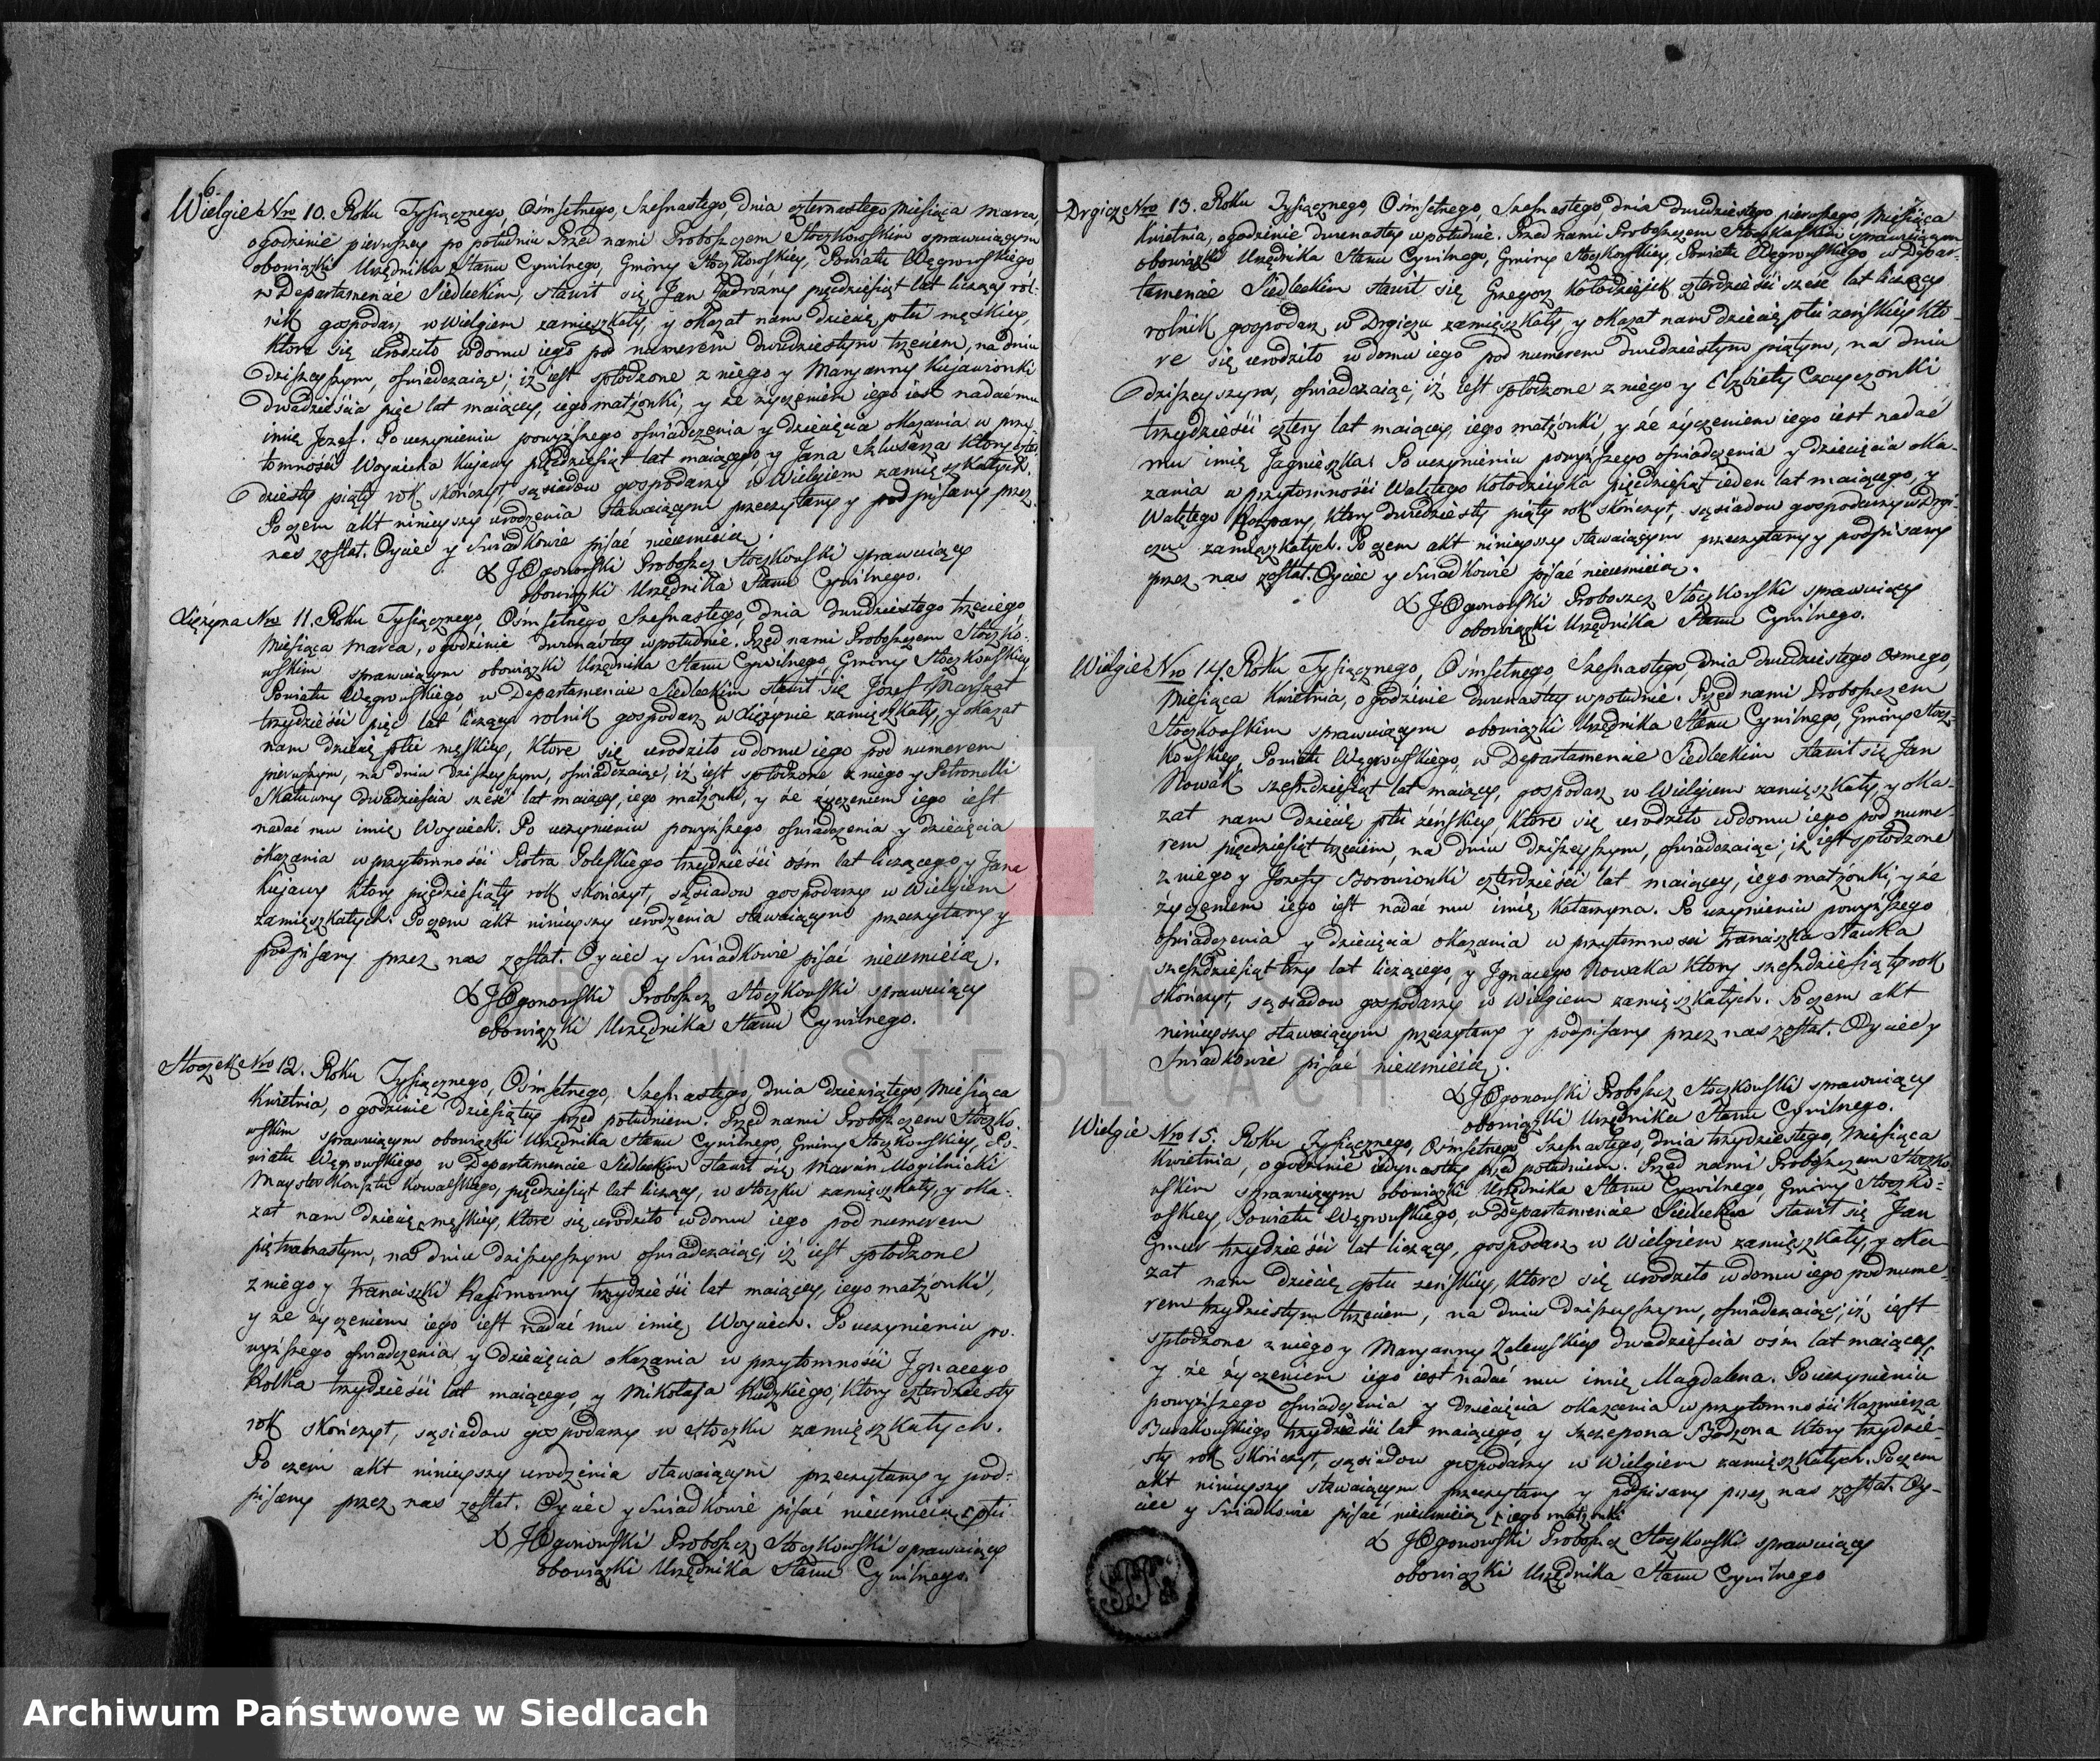 6.
Wielgie Nro 10. Roku Tysiącznego, Ośmsetnego, Szesnastego, dnia czternastego Miesiąca Marca,
o godzinie pierwszey po południu Przed nami Proboszczem Stoczkowskim sprawuiącym
obowiązki Urzędnika Stanu Cywilnego, Gminy Stoczkowskiey, Powiatu Węgrowskiego
w Departamencie Siedleckim, stawił się Jan Zadrożny pięćdziesiąt lat liczący rol-
nik gospodarz w Wielgiem zamieszkały, y okazał nam dziecię płci męskiey,
które się urodziło w domu iego pod numerem dwudziestym trzeciem, na dniu
dzisieyszym, oświadczaiąc; iż iest spłodzone z niego y Maryanny Kujawionki
dwadzieścia pięć lat maiącey, iego małżonki, y że życzeniem iego iest nadać mu
imię Jozef. Po uczynieniu powyższego oświadczenia y dziecięcia okazania w przy-
tomności Woyciecha Kujawy pięćdziesiąt lat maiącego, y Jana Szlusarza który
dziesty piąty rok skończył sąsiadow gospodarzy w Wielgiem zamięszkałych.
Po czem akt ninieyszy urodzenia stawaiącym przeczytany y podpisany przez
nas został. Oyciec y Swiadkowie pisać nieumieią.
X J Ogonowski Proboszcz Stoczkowski sprawuiący
obowiązki Urzędnika Stanu Cywilnego.
Nro 11. Roku Tysiącznego, Ośmsetnego Szesnastego, dnia dwudziestego trzeciego
Miesiąca Marca, o godzinie dwunastey w południe. Przed nami Proboszczem Stoczko-
wskim sprawuiącym obowiązki Urzędnika Stanu Cywilnego, Gminy Stoczkowskiey
Powiatu Węgrowskiego, w Departamencie Siedleckim stawił się Jozef Marszał
trzydzieści pięć lat liczący rolnik gospodarz w zamięszkały, y okazał
nam dziecię płci męskiey, ktore się urodziło w domu iego pod numerem
pierwszym, na dniu dzisieyszym, oświadczaiąc, iż iest spłodzone z niego y Petronelli
Skałuwny dwadzieścia sześć lat maiącey, iego małżonki, y że życzeniem iego iest
nadać mu imię Woyciech. Po uczynieniu powyższego oświadczenia y dziecięcia
okazania w przytomności Piotra Poleskiego trzydzieści ośm lat liczącego y Jana
Kujawy ktory pięćdziesiąty rok skończył, sąsiadow gospodarzy w Wielgiem
zamięszkałych. Poczem akt ninieyszy urodzenia stawaiącym przeczytany y
podpisany przez nas został. Oyciec y Swiadkowie pisać nieumieią.
X J Ogonowski Proboszcz Stoczkowski sprawuiący
obowiązki Urzędnika Stanu Cywilnego.
Stoczek Nro 12. Roku Tysiącznego, Ośmsetnego, Szesnastego, dnia dziewiątego Miesiąca
Kwietnia, o godzinie dziesiątey przed południem. Przed nami Proboszczem Stoczko-
wskim sprawuiącym obowiązki Urzędnika Stanu Cywilnego, Gminy Stoczkowskiey, Po-
wiatu Węgrowskiego, w Departamencie Siedleckim stawił się Marcin Mogilnicki
Mayster Konsztu Kowalskiego, pięćdziesiąt lat liczący, w Stoczku zamięszkały, y oka-
zał nam dziecię męskiey, ktore się urodziło w domu iego pod numerem
piętnastym, na dniu dzisieyszym oświadczaiąc; iż iest spłodzone
z niego y Franciszki Kazimowny trzydzieści lat maiącey, iego małżonki,
y że życzeniem iego iest nadać mu imię Woyciech. Po uczynieniu po-
wyższego oświadczenia y dziecięcia okazania w przytomności Jgnacego
Kolka trzydzieści lat maiącego, y Mikołaja Kudzkiego, ktory czterdziesty
rok skończył, sąsiadow gospodarzy w Stoczku zamięszkałych.
Po czem akt ninieyszy urodzenia stawaiącym przeczytany y pod-
pisany przez nas został. Oyciec y Swiadkowie pisać nieumieią. płci
X J Ogonowski Proboszcz Stoczkowski sprawuiący
obowiązki Urzędnika Stanu Cywilnego.
Drgicz Nro 13. Roku Tysiącznego, Ośmsetnego, Szesnastego, dnia dwudziestego pierwszego, Miesiąca
Kwietnia, o godzinie dwunastey w południe. Przed nami Proboszczem Stoczkowskim sprawuiącym
obowiązki Urzędnika Stanu Cywilnego, Gminy Stoczkowskiey, Powiatu Węgrowskiego w Depar-
tamencie Siedleckim stawił się Grzegorz Kołodzieyek czterdzieści sześć lat liczący
rolnik gospodarz w Drgiczu zamięszkały, y okazał nam dziecię płci żeńskiey kto-
re się urodziło w domu iego pod numerem dwudziestym piątym, na dniu
dzisieyszym, oświadczaiąc; iż iest spłodzone z niego y Elzbiety Czayczonki
trzydzieści cztery lat maiącey, iego małżonki, y że życzeniem iego iest nadać
mu imię Jagnieszka. Po uczynieniu powyższego oświadczenia y dziecięcia oka-
zania w przytomności Walętego Kołodzieyka pięćdziesiąt ieden lat maiącego, y
Walętego Rozpary, ktory dwudziesty piąty rok skończył, sąsiadow gospodarzy w Drgi-
czu zamięszkałych. Po czem akt ninieyszy stawaiącym przeczytany y podpisany
przez nas został. Oyciec y Swiadkowie pisać nieumieią.
X J Ogonowski Proboszcz Stoczkowski sprawuiący
obowiązki Urzędnika Stanu Cywilnego.
Wielgie Nro 14. Roku Tysiącznego, Ośmsetnego, Szesnastego, dnia dwudziestego Osmego,
Miesiąca Kwietnia, o godzinie dwunastey w południe. Przed nami Proboszczem
Stoczkowskim sprawuiącym obowiązki Urzędnika Stanu Cywilnego, Gminy Stocz-
kowskiey, Powiatu Węgrowskiego, w Departamencie Siedleckim stawił się Jan
Nowak sześćdziesiąt lat maiący, gospodarz w Wielgiem zamięszkały, y oka-
zał nam dziecię płci żeńskiey ktore się urodziło w domu iego pod nume-
rem pięćdziesiąt trzeciem, na dniu dzisieyszym, oświadczaiąc; iż iest spłodzone
z niego y Jozefy Borowionki czterdzieści lat maiącey, iego małżonki, y że
życzeniem iego iest nadać mu imię Katarzyna. Po uczynieniu powyższego
oświadczenia y dziecięcia okazania w przytomności Franciszka Stańka
sześćdziesiąt trzy lat liczącego, y Jgnacego Nowaka ktory sześćdziesiąty rok
skończył, sąsiadow gospodarzy w Wielgiem zamięszkałych. Po czem akt
ninieyszy stawaiącym przeczytany y podpisany przez nas został. Oyciec y
Swiadkowie pisać nieumieią.
X J Ogonowski Proboszcz Stoczkowski sprawuiący
obowiązki Urzędnika Stanu Cywilnego.
Wielgie Nro 15. Roku Tysiącznego, Ośmsetnego Szesnastego, dnia trzydziestego, Miesiąca
Kwietnia, o godzinie iedynastey przed południem. Przed nami Proboszczem Stoczko-
wskim sprawuiącym obowiązki Urzędnika Stanu Cywilnego, Gminy Stoczko-
wskiey, Powiatu Węgrowskiego, w Departamencie Siedleckim stawił się Jan
trzydzieści lat liczący, gospodarz w Wielgiem zamięszkały, y oka
zał nam dziecię płci żeńskiey, ktore się urodziło w domu iego pod nume-
rem trzydziestym trzeciem, na dniu dzisieyszym, oświadczaiąc; iż iest
spłodzone z niego y Maryanny Zalewskiey dwadzieścia ośm lat maiącey,
y że życzeniem iego iest nadać mu imię Magdalena. Po uczynieniu
powyższego oświadczenia y dziecięcia okazania w przytomności Kazmierza
Burakowskiego trzydzieści lat maiącego, y Szczepona ktory trzydzie-
sty rok skończył, sąsiadow gospodarzy w Wielgiem zamięszkałych. Poczem
akt ninieyszy stawaiącym przeczytany y podpisany przez nas został. Oy-
ciec y Swiadkowie pisać nieumieią iego małżonki
X J Ogonowski Proboszcz Stoczkowski sprawuiący
obowiązki Urzędnika Stanu Cywilnego
ARCHIWUM PAŃSTWOWE
W SIEDLCACH
Archiwum Państwowe w Siedlcach